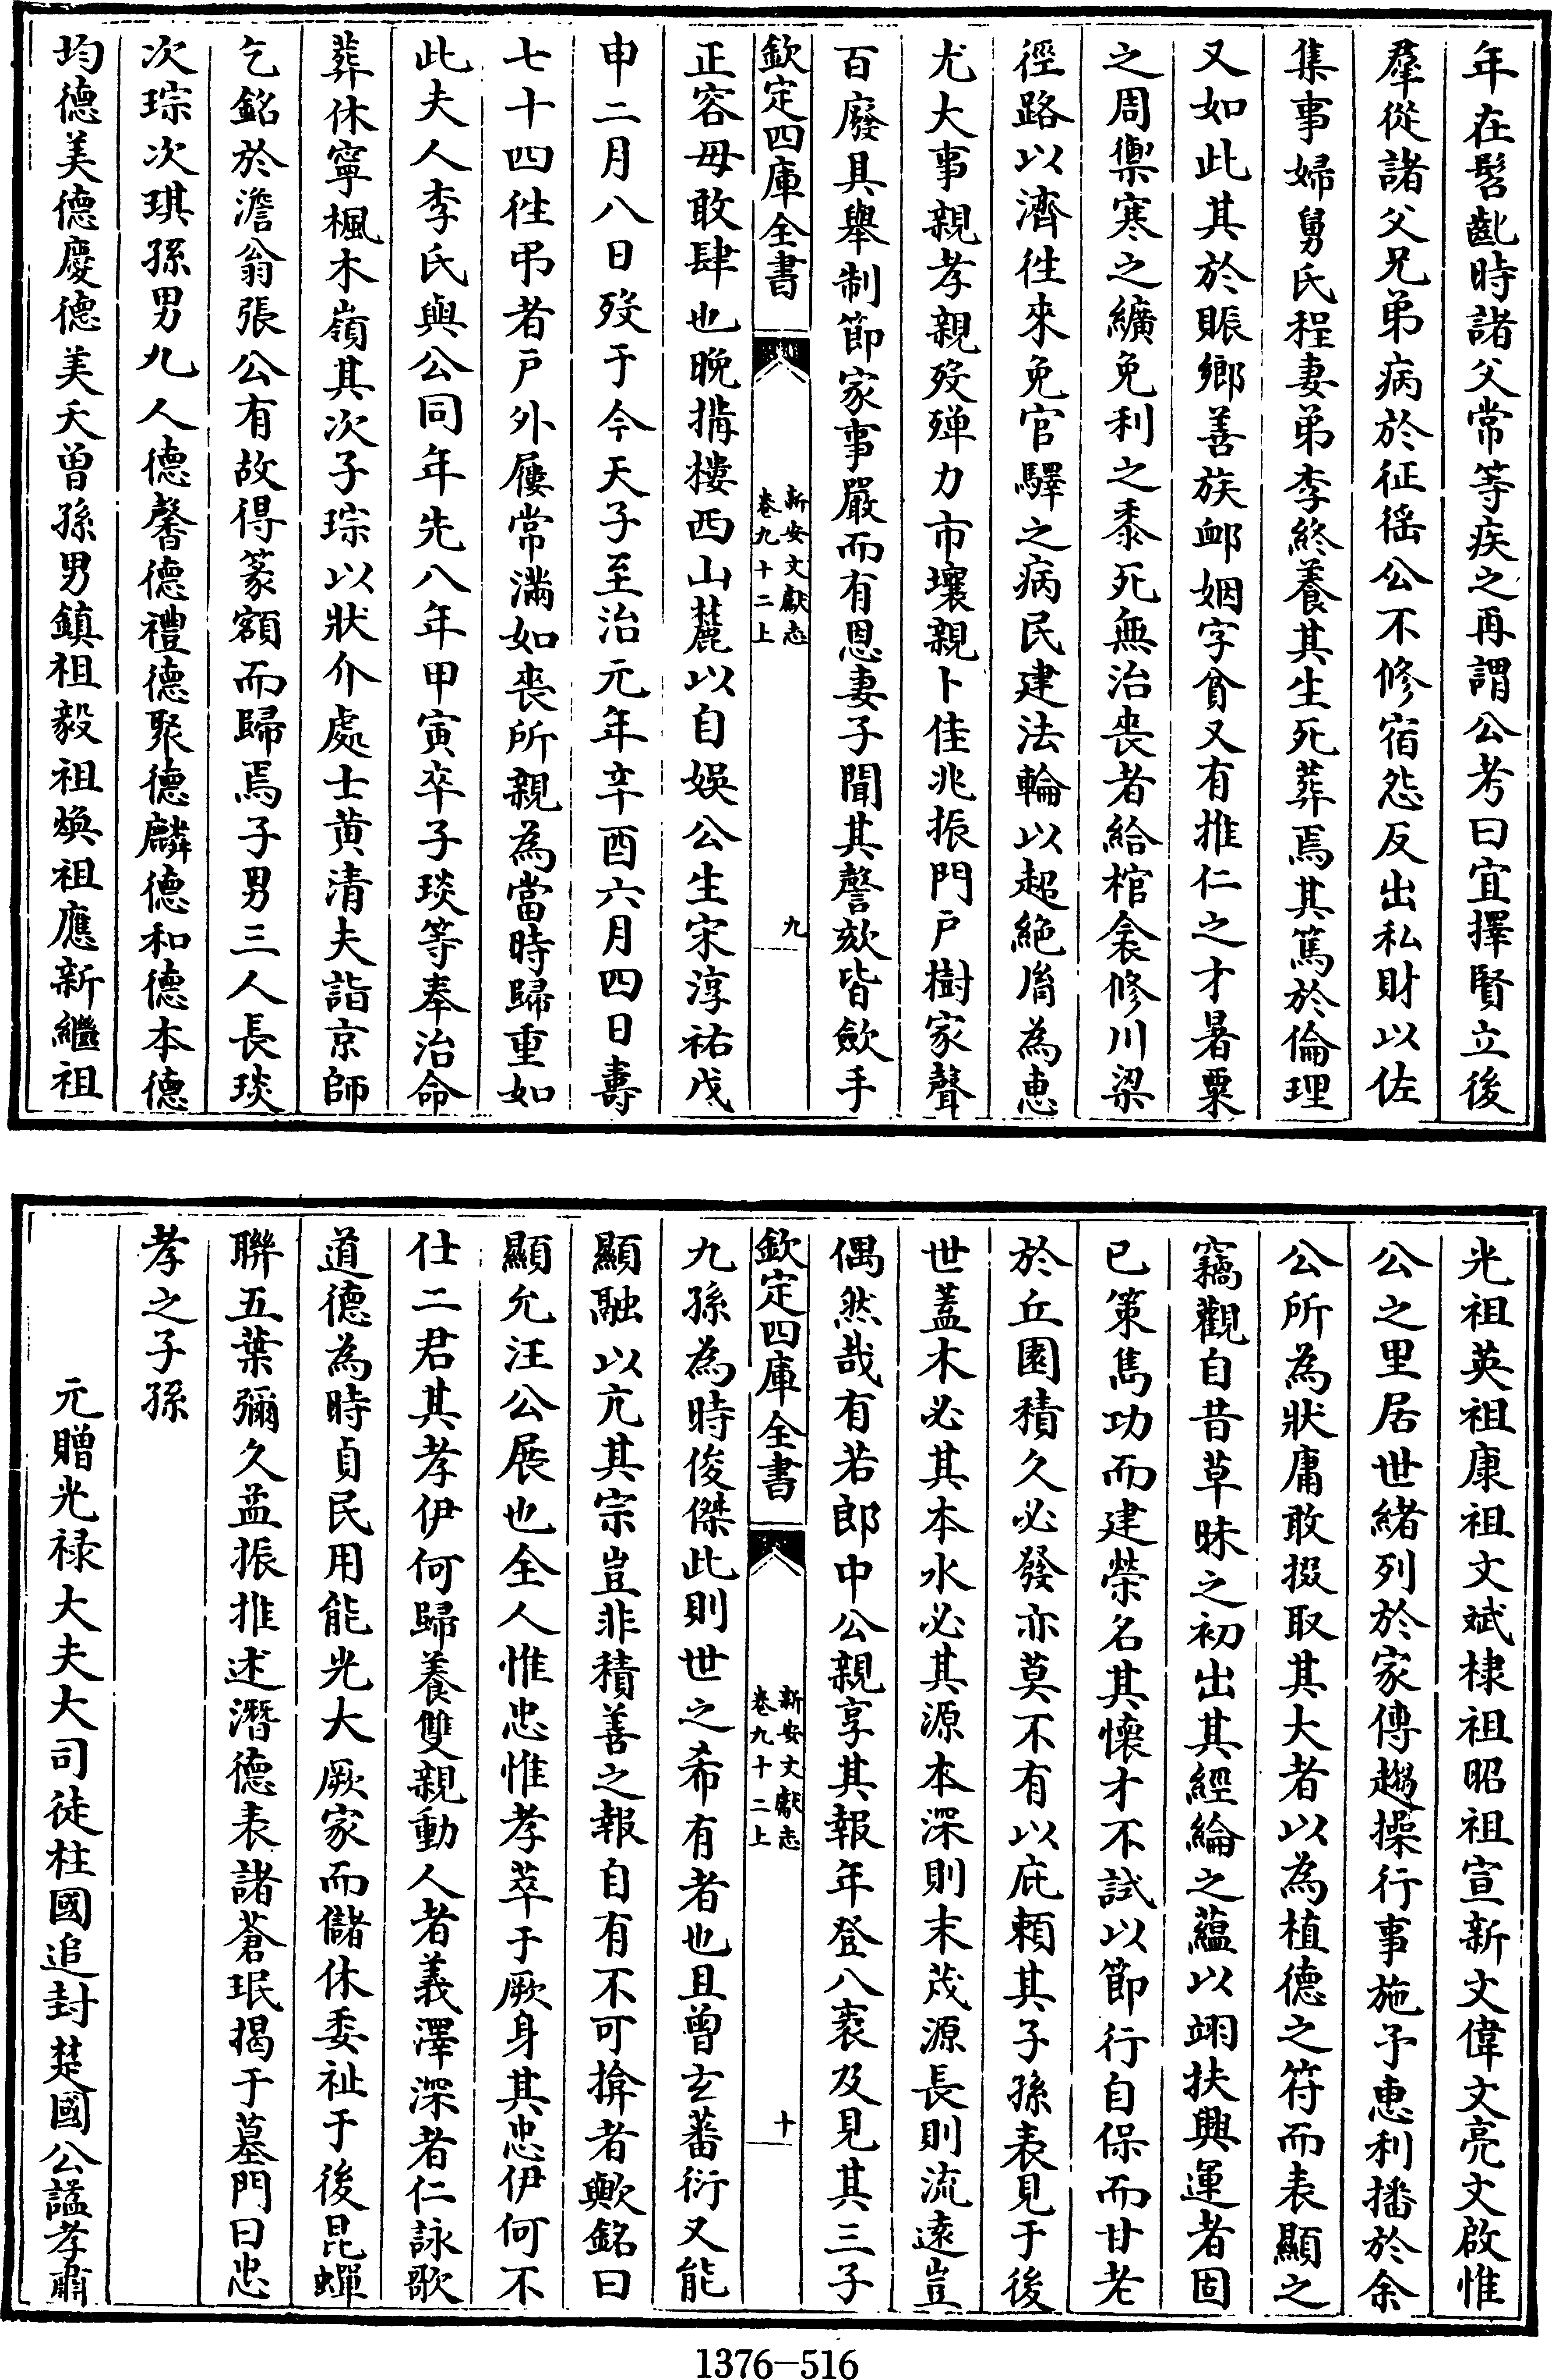 年在髫齔時諸父常等疾之再謂公考曰宜擇賢立後
羣從諸父兄弟病於征徭公不修宿怨反出私財以佐
集事婦舅氏程妻弟李終養其生死葬焉其篤於倫理
又如此其於賑鄉善族卹姻字貧又有推仁之才暑粟
之周禦寒之纊免利之黍死無治喪者給棺衾修川梁
徑路以濟徃來免官驛之病民建法輪以超絶胤為惠
尤大事親孝親歿殫力市壤親卜佳兆振門戶樹家聲
百廢具舉制節家事嚴而有恩妻子聞其謦欬皆斂手
欽定四庫全書
新安文獻志
卷九十二上
九
正容毋敢肆也晚搆樓西山麓以自娛公生宋淳祐戊
申二月八日歿于今天子至治元年辛酉六月四日壽
七十四徃弔者戶外屨常滿如喪所親為當時歸重如
此夫人李氏與公同年先八年甲寅卒子琰等奉治命
葬休寧楓木嶺其次子琮以狀介處士黄清夫詣京師
乞銘於澹翁張公有故得篆額而歸焉子男三人長琰
次琮次琪孫男九人德馨德禮德聚德麟德和德本德
均德美德慶德美夭曾孫男鎮祖毅祖煥祖應新繼祖
光祖英祖康祖文斌棣祖昭祖宣新文偉文亮文啟惟
公之里居世緒列於家傳趨操行事施予惠利播於余
公所為狀庸敢掇取其大者以為植德之符而表顯之
竊觀自昔草昧之初出其經綸之蘊以翊扶興運者固
已策雋功而建榮名其懷才不試以節行自保而甘老
於丘園積久必發亦莫不有以庇賴其子孫表見于後
世蓋木必其本水必其源本深則末茂源長則流遠豈
偶然哉有若郎中公親享其報年登八袠及見其三子
欽定四庫全書
新安文獻志
卷九十二上
十
九孫為時俊傑此則世之希有者也且曾玄蕃衍又能
顯融以亢其宗豈非積善之報自有不可揜者歟銘曰
顯允汪公展也全人惟忠惟孝萃于厥身其忠伊何不
仕二君其孝伊何歸養雙親動人者義澤深者仁詠歌
道德為時貞民用能光大厥家而儲休委祉于後昆蟬
聯五葉彌久益振推述潛德表諸蒼珉揭于墓門曰忠
孝之子孫
元贈光禄大夫大司徒柱國追封楚國公諡孝肅
1376-516